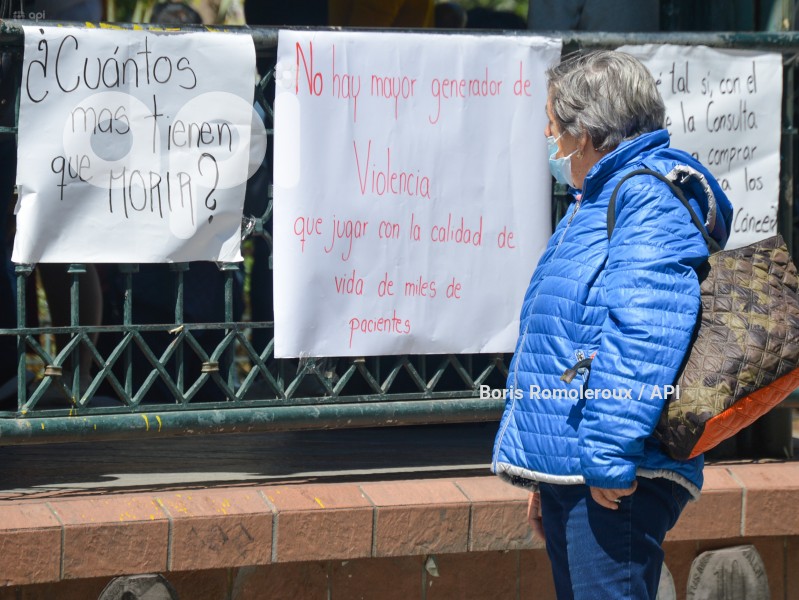 api
¿Cuántos
mas tienen
que MORIR?
No hay mayor generador de
Violencia
que jugar con la calidad de
vida de miles de
pacientes
tal si, con el
de la Consulta
comprar
a los
Cáncer?
Boris Romoleroux / API